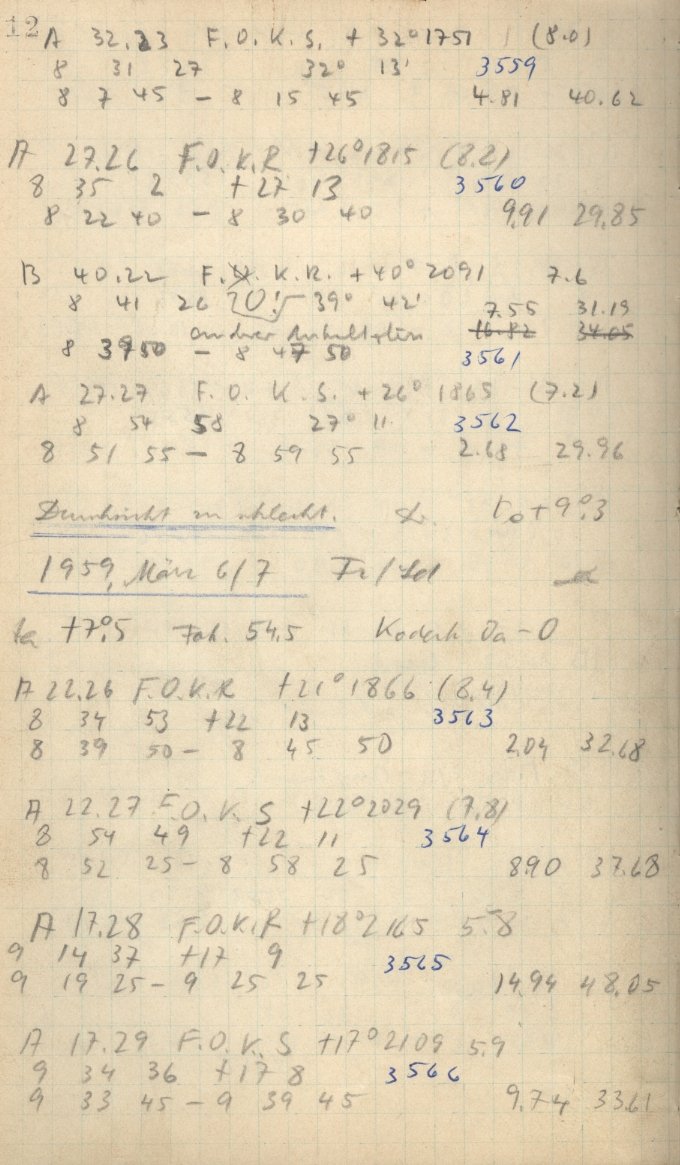 12
A 32.23 F.O.K.S. + 32° 1751 (8.0)
8 31 27 32° 13' 3559
8 7 45 – 8 15 45 4.81 40.62
A 27.26 F.O.K.R +26° 1815 (8.2)
8 35 2 +27 13 3560
8 22 40 – 8 30 40 9.91 29.85
B 40.22 F.O. K.R. +40° 2091 7.6
8 41 26 39° 42' 7.55 31.19
andrer 16.82 34.05
8 39 50 – 8 47 50 3561
A 27.27 F.O.K.S. +26° 1865 (7.2)
8 54 58 27° 11 3562
8 51 55 – 8 59 55 2.68 29.96
Durchsicht zu schlecht. +9°.3
1959, März 6/7
+7°.5 Fok. 54.5 Kodak Oa-O
A 22.26 F.O.K.R +21° 1866 (8.4)
8 34 53 +22 13 3563
8 39 50 – 8 45 50 2.04 32.68
A 22.27 F.O.K.S +22° 2029 (7.8)
8 54 49 +22 11 3564
8 52 25 – 8 58 25 8.90 37.68
A 17.28 F.O.K.R +18° 2165 5.8
9 14 37 +17 9 3565
9 19 25 – 9 25 25 14.94 48.05
A 17.29 F.O.K.S +17° 2109 5.9
9 34 36 +17 8 3566
9 33 45 – 9 39 45 9.74 33.61